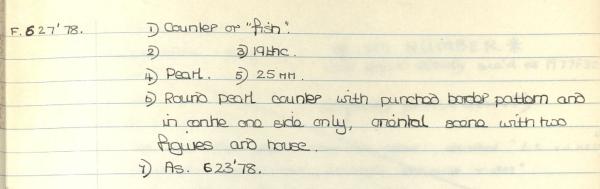 F.627'78. 1) Counter or "fish".
2) 3) 19thc.
4) Pearl. 5) 25 MM.
6) Round pearl counter with punched border pattern and
in centre one side only, oriental scene with two
figures and house.
7) As. 623'78.